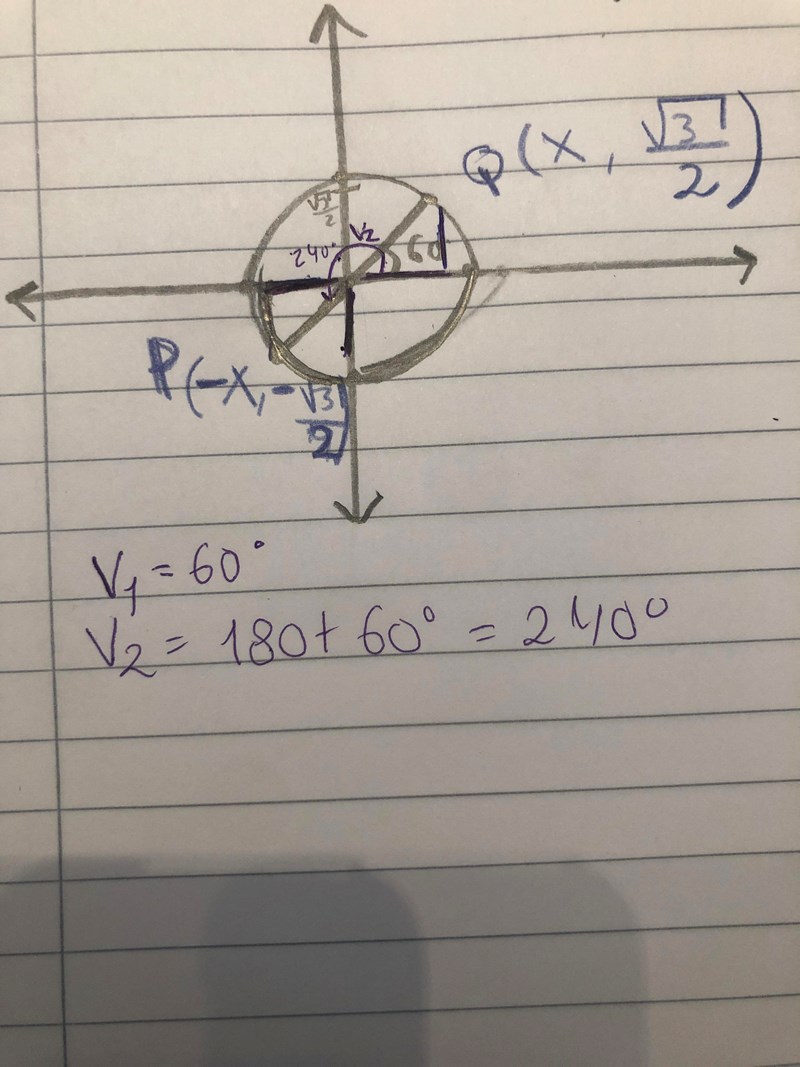 Q(x, √3/2)
√3/2
V2
240°
60
P(-x, -√3/2)
V1 = 60°
V2 = 180+ 60° = 240°